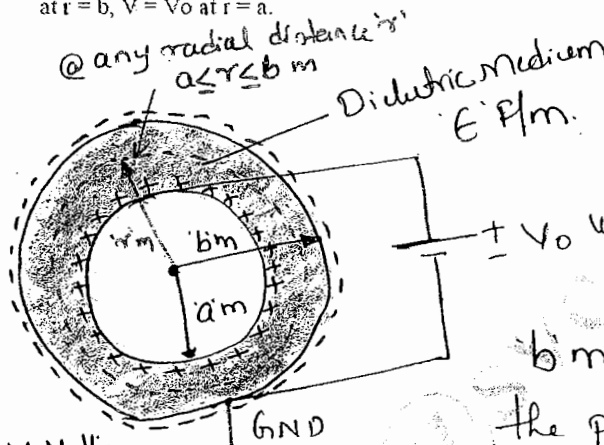 at r = b, V = Vo at r = a.
@ any radial distance 'r'
a≤r≤b m
Dielectric Medium
'ε' F/m.
'r'm
'b'm
'a'm
+
-
Vo
'b' m
the
GND